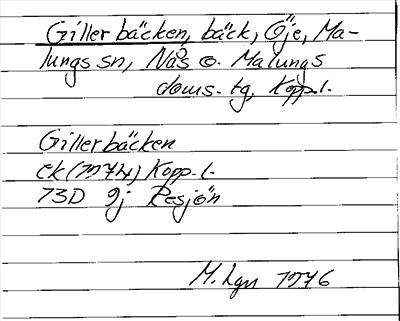 Gillerbäcken, bäck, Öje, Ma-
lungs sn, Nås o. Malungs
doms. tg, Kopp.l.
Gillerbäcken
ek (1974) Kopp. l.
73D 9j Resjön
M. Lgn 1976